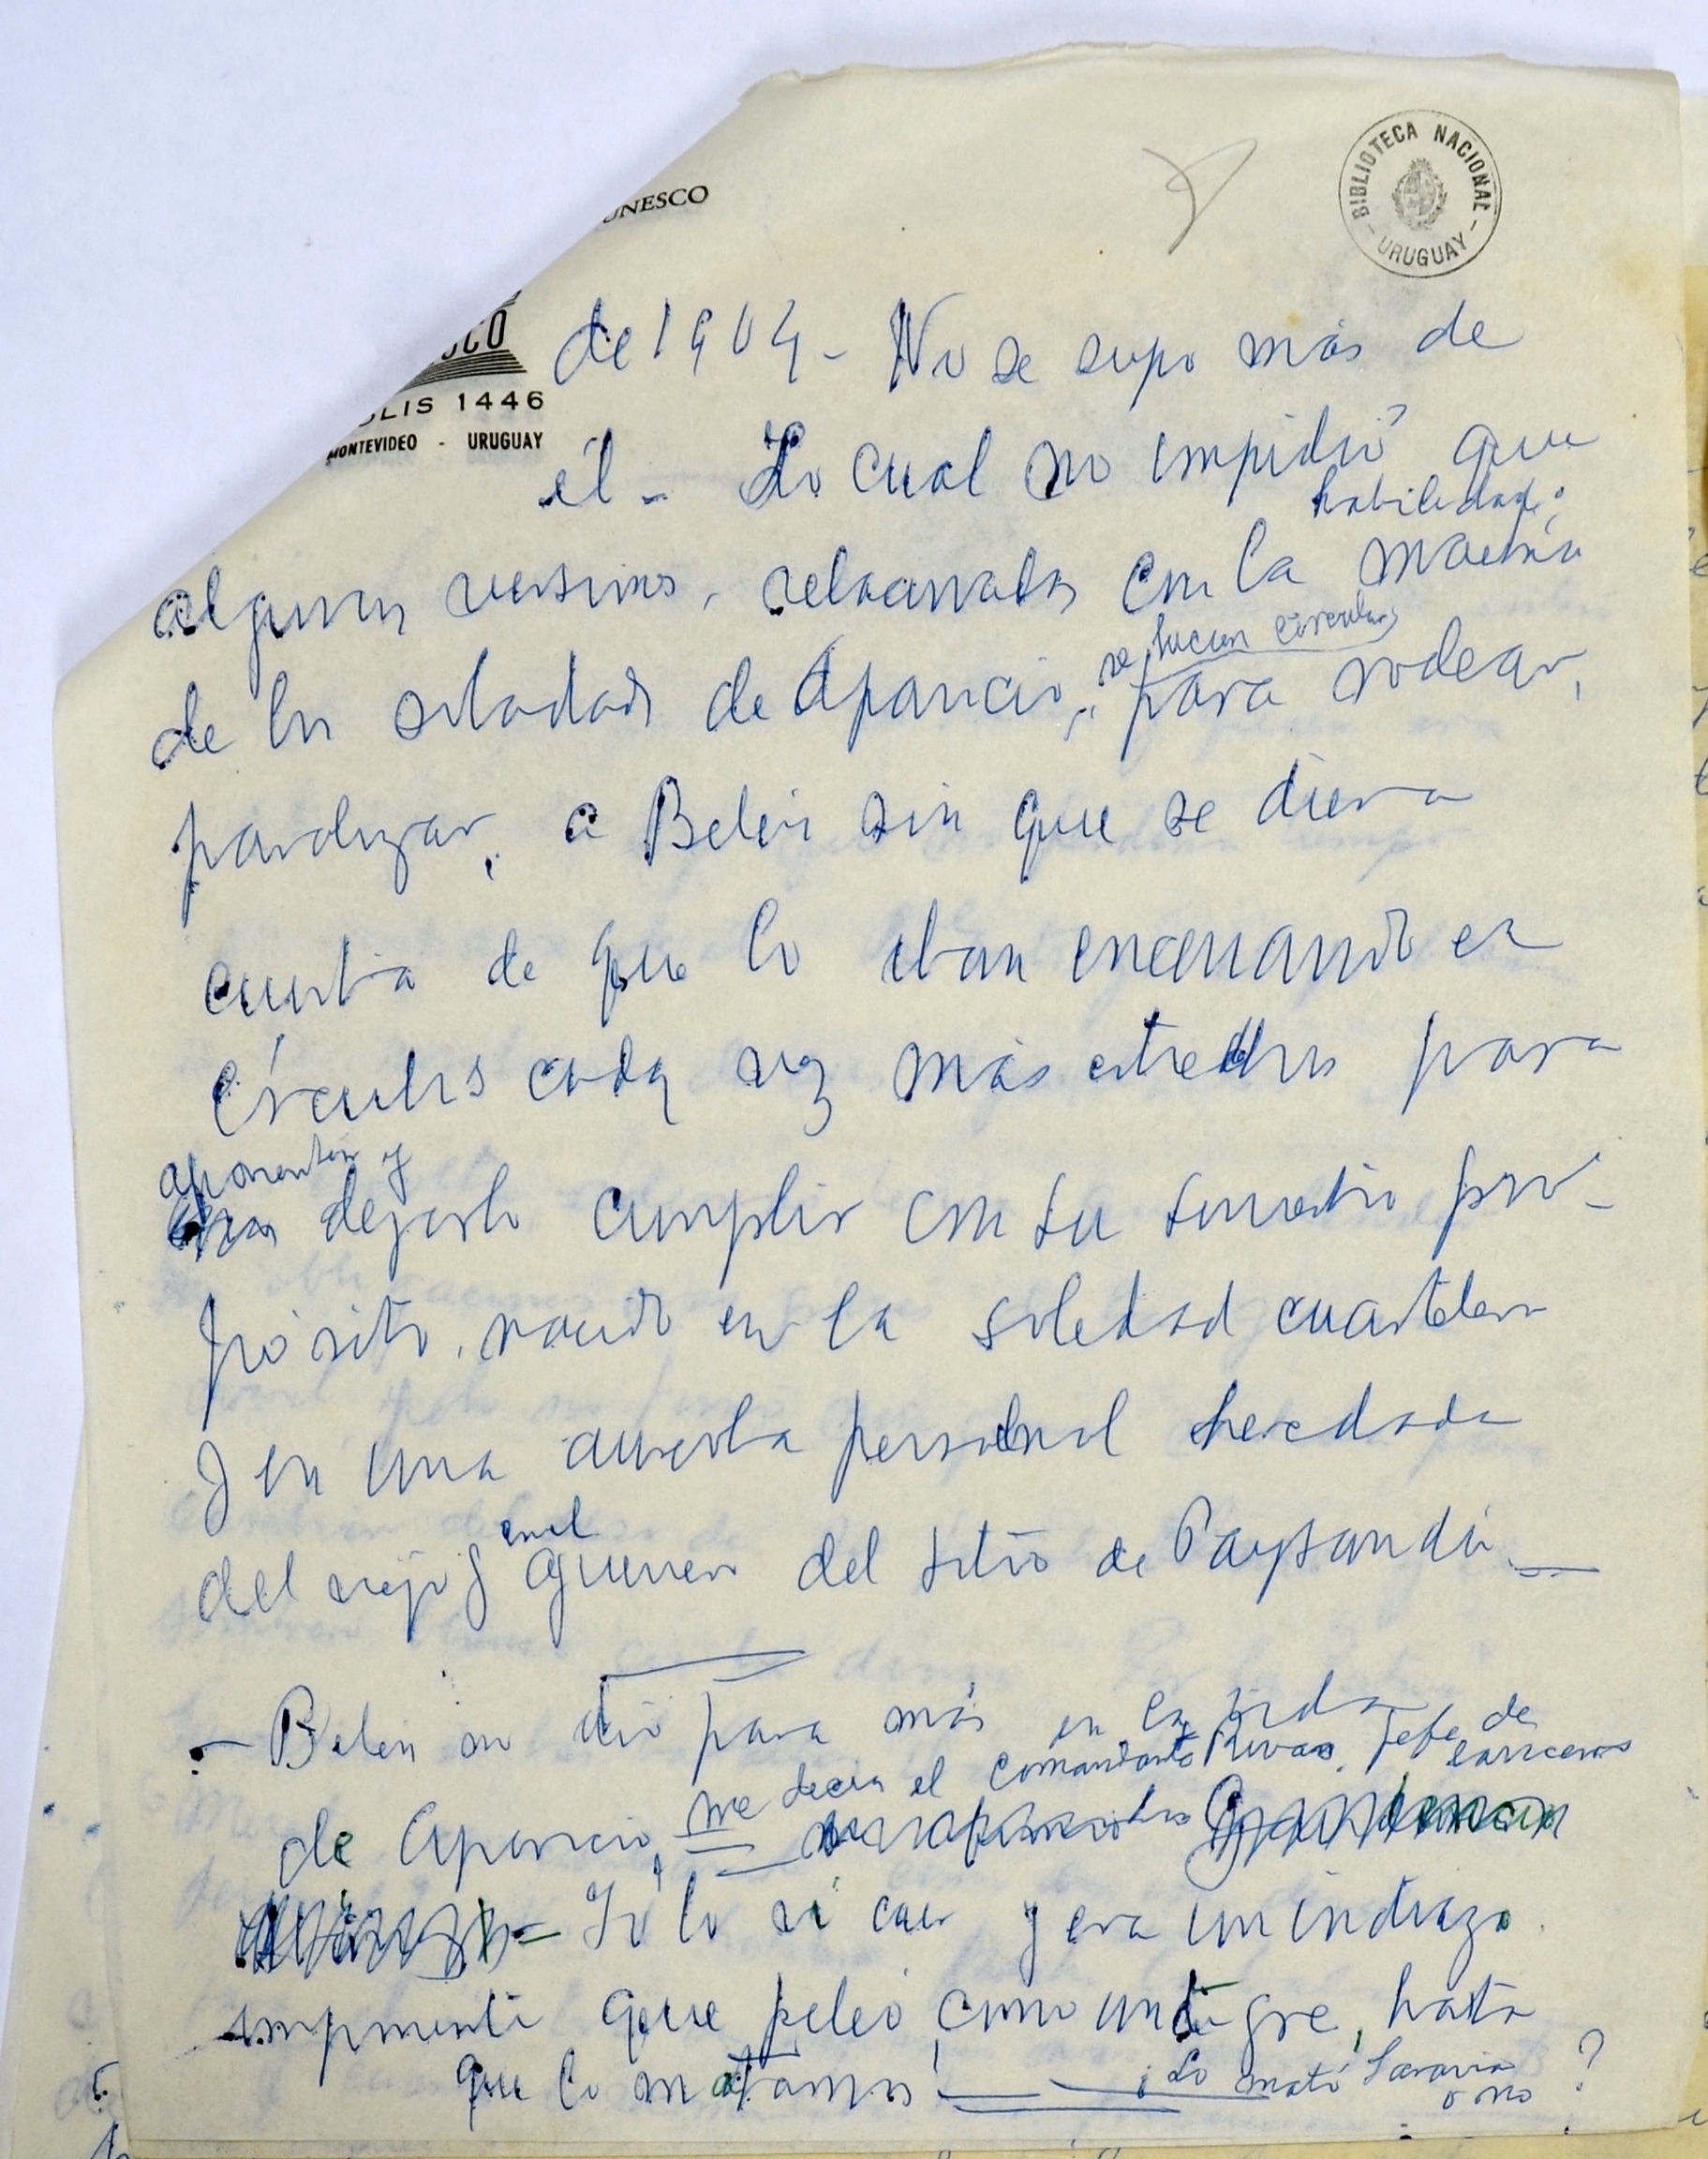 UNESCO
BIBLIOTECA NACIONAL
- URUGUAY -
LIS 1446
MONTEVIDEO - URUGUAY
de 1904 - No se supo más de
él - Lo cual no impidió que
habilidad;
algunas versiones, relacionadas con la
de los soldados de Aparicio, para rodear,
se hacían círculos
paralizar, a Belén sin que se diera
cuenta de que lo iban encerrando en
círculos cada vez más estrechos para
y
dejarlo cumplir con su pro-
pósito, nacido en la soledad cuartelera
y en una personal heredada
en el
del viejo guerrero del sitio de Paysandú. —
- Belén no dió para más en la vida
me decía el comandante Rivas, jefe de lanceros
de Aparicio,
- Yo lo vi caer y era un indiazo
imponente que peleó como un tigre, hasta
que lo matamos!
¿Lo mató Saravia
o no ?